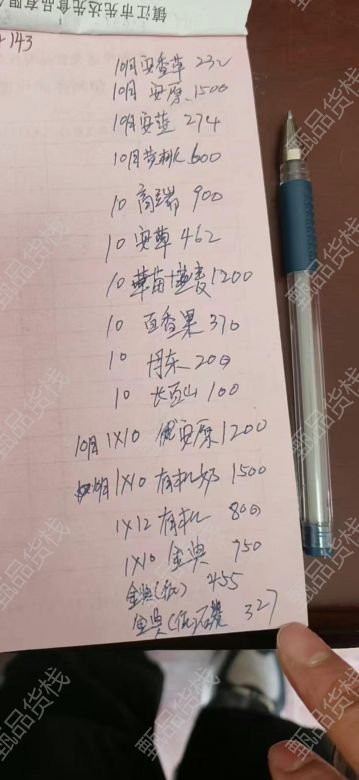 镇江市先达先食品有限
143
10月安香草 232
10月 安原 1500
10月安蓝 274
10月黄桃 600
10 高端 900
10 安草 462
10 草苗+燕麦 1200
10 百香果 370
10 丹东 200
10 长白山 100
10月 1X10 优安原 1200
10月 1X10 有机奶 1500
1X12 有机 800
1X10 金典 750
金典(低) 455
金典(低) 327
甄品货栈